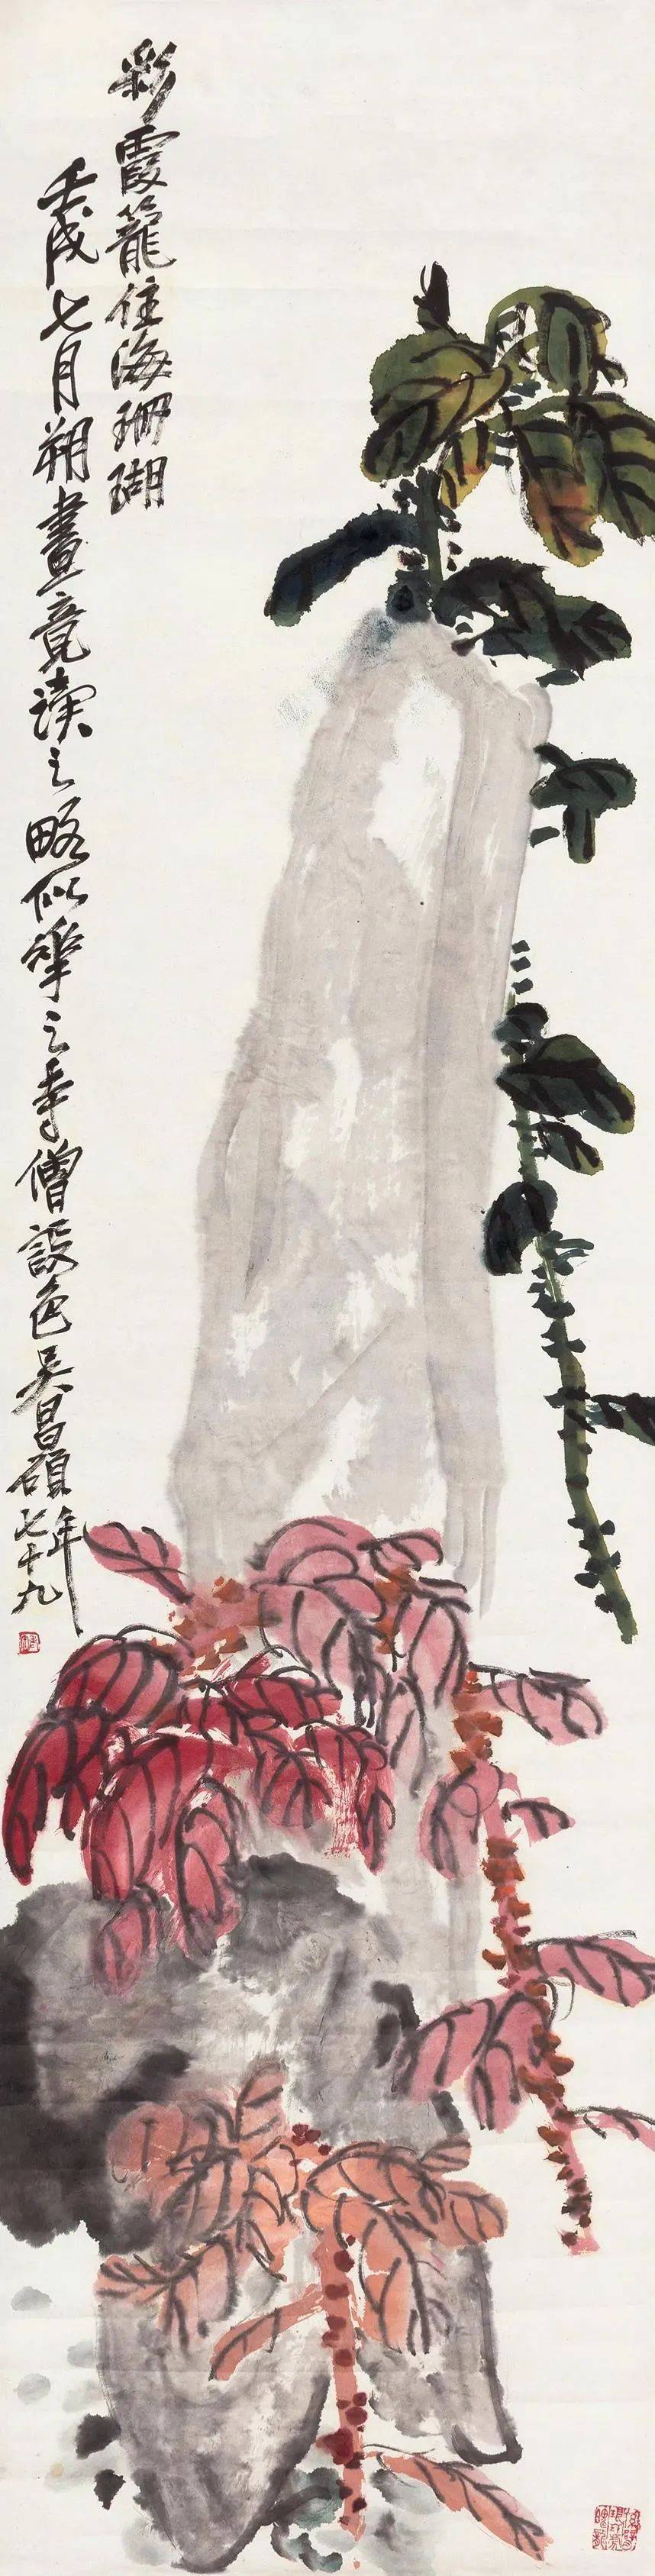 彩霞籠住海珊瑚
壬戌七月朔畫竟讀之略似華之寺僧設色吳昌碩年七十九